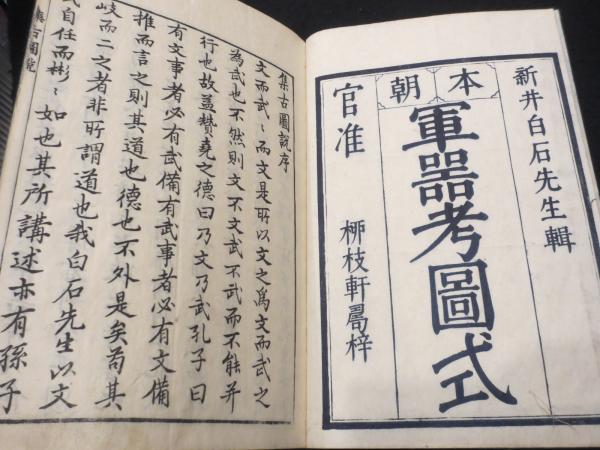 新井白石先生輯
本朝
軍器考圖式
官准
柳枝軒蔵梓
集古圖説序
文而武〻而文是所以文之為文而武之
為武也不然則文不文武不武而不能并
行也故益赞堯之德曰乃文乃武孔子曰
有文事者必有武備有武事者必有文備
推而言之則其道也德也不外是矣苟其
岐而二之者非所謂道也我白石先生以文
自任而彬〻如也其所講述亦有孫子
集古圖說